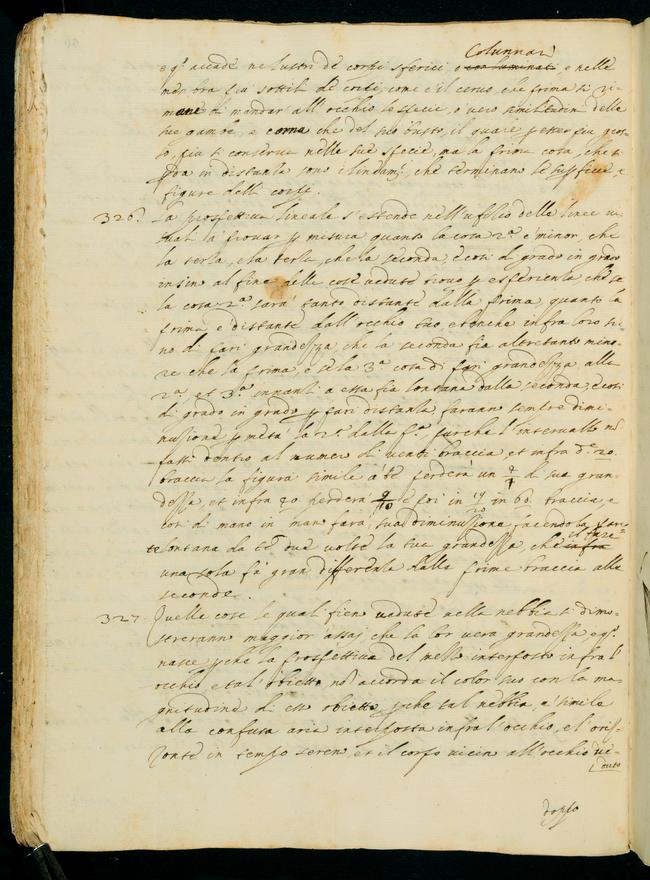 Colunnari
e q.º accade ne lustri de corpi sferici, o con luminati, e nelle
membra piu sottili de corpi, come è il ceruo, che prima si ri-
mane di mandar all' occhio le specie, o vero similitudin delle
sue gambe, e corna che del suo busto, il quale p esser piu gros-
so, piu si conserua nelle sue specie, ma la prima cosa, che si
pda in distantia sono i lindam.ti che terminano le superficie, e
figure delli corpi.
326. La prospettiua lineale s'estende nell' ufitio della linee ui-
suali à prouar p misura quanto la cosa 2.ª è minor, che
la terla, e la terla, che la seconda, e così di grado in grado
insino al fine delle cose vedute trouo p esperienta che se
la cosa 2.ª sarà tanto distante dalla prima, quanto la
prima è distante dall' occhio tuo, e benche infra loro si-
no di pari grandezza, che la seconda fia altretanto mino-
re che la prima, e se la 3.ª cosa di pari grandezza alla
2.ª et 3.ª innanti a essa fia lontana dalla seconda, e così
di grado in grado p pari distantia faranno sempre dimi-
nutione p metà la 2.ª dalla p.ª purche l' interuallo nõ
passi dentro al numero di uenti braccia, et infra d.º 20.
braccia la figura simile à te perderà un 2/4 di sua gran-
dezza, et infra 40 perderà 9/10 e poi in 19/20 in 60. braccia, e
così di mano in mano farà sua diminutione facendo la pari-
te lontana da te due volte la tua grandezza, che infra il fare
una sola fà gran differentia dalle prime braccia alle
seconde.
327. Quelle cose le quali fien vedute nella nebbia si dimo-
streranno maggior assaj, che la lor vera grandezza e q.º
nasce pche la prospettiua del mezzo interposto infra l'
occhio, e tal' obietto nõ accorda il color suo con la ma-
gnitudine di esso obietto, pche tal nebbia, è simile
alla confusa aria interposta infra l' occhio, e l' oriz-
zonte in tempo seren, et il corpo uicin all' occhio ue-
duto
doppo